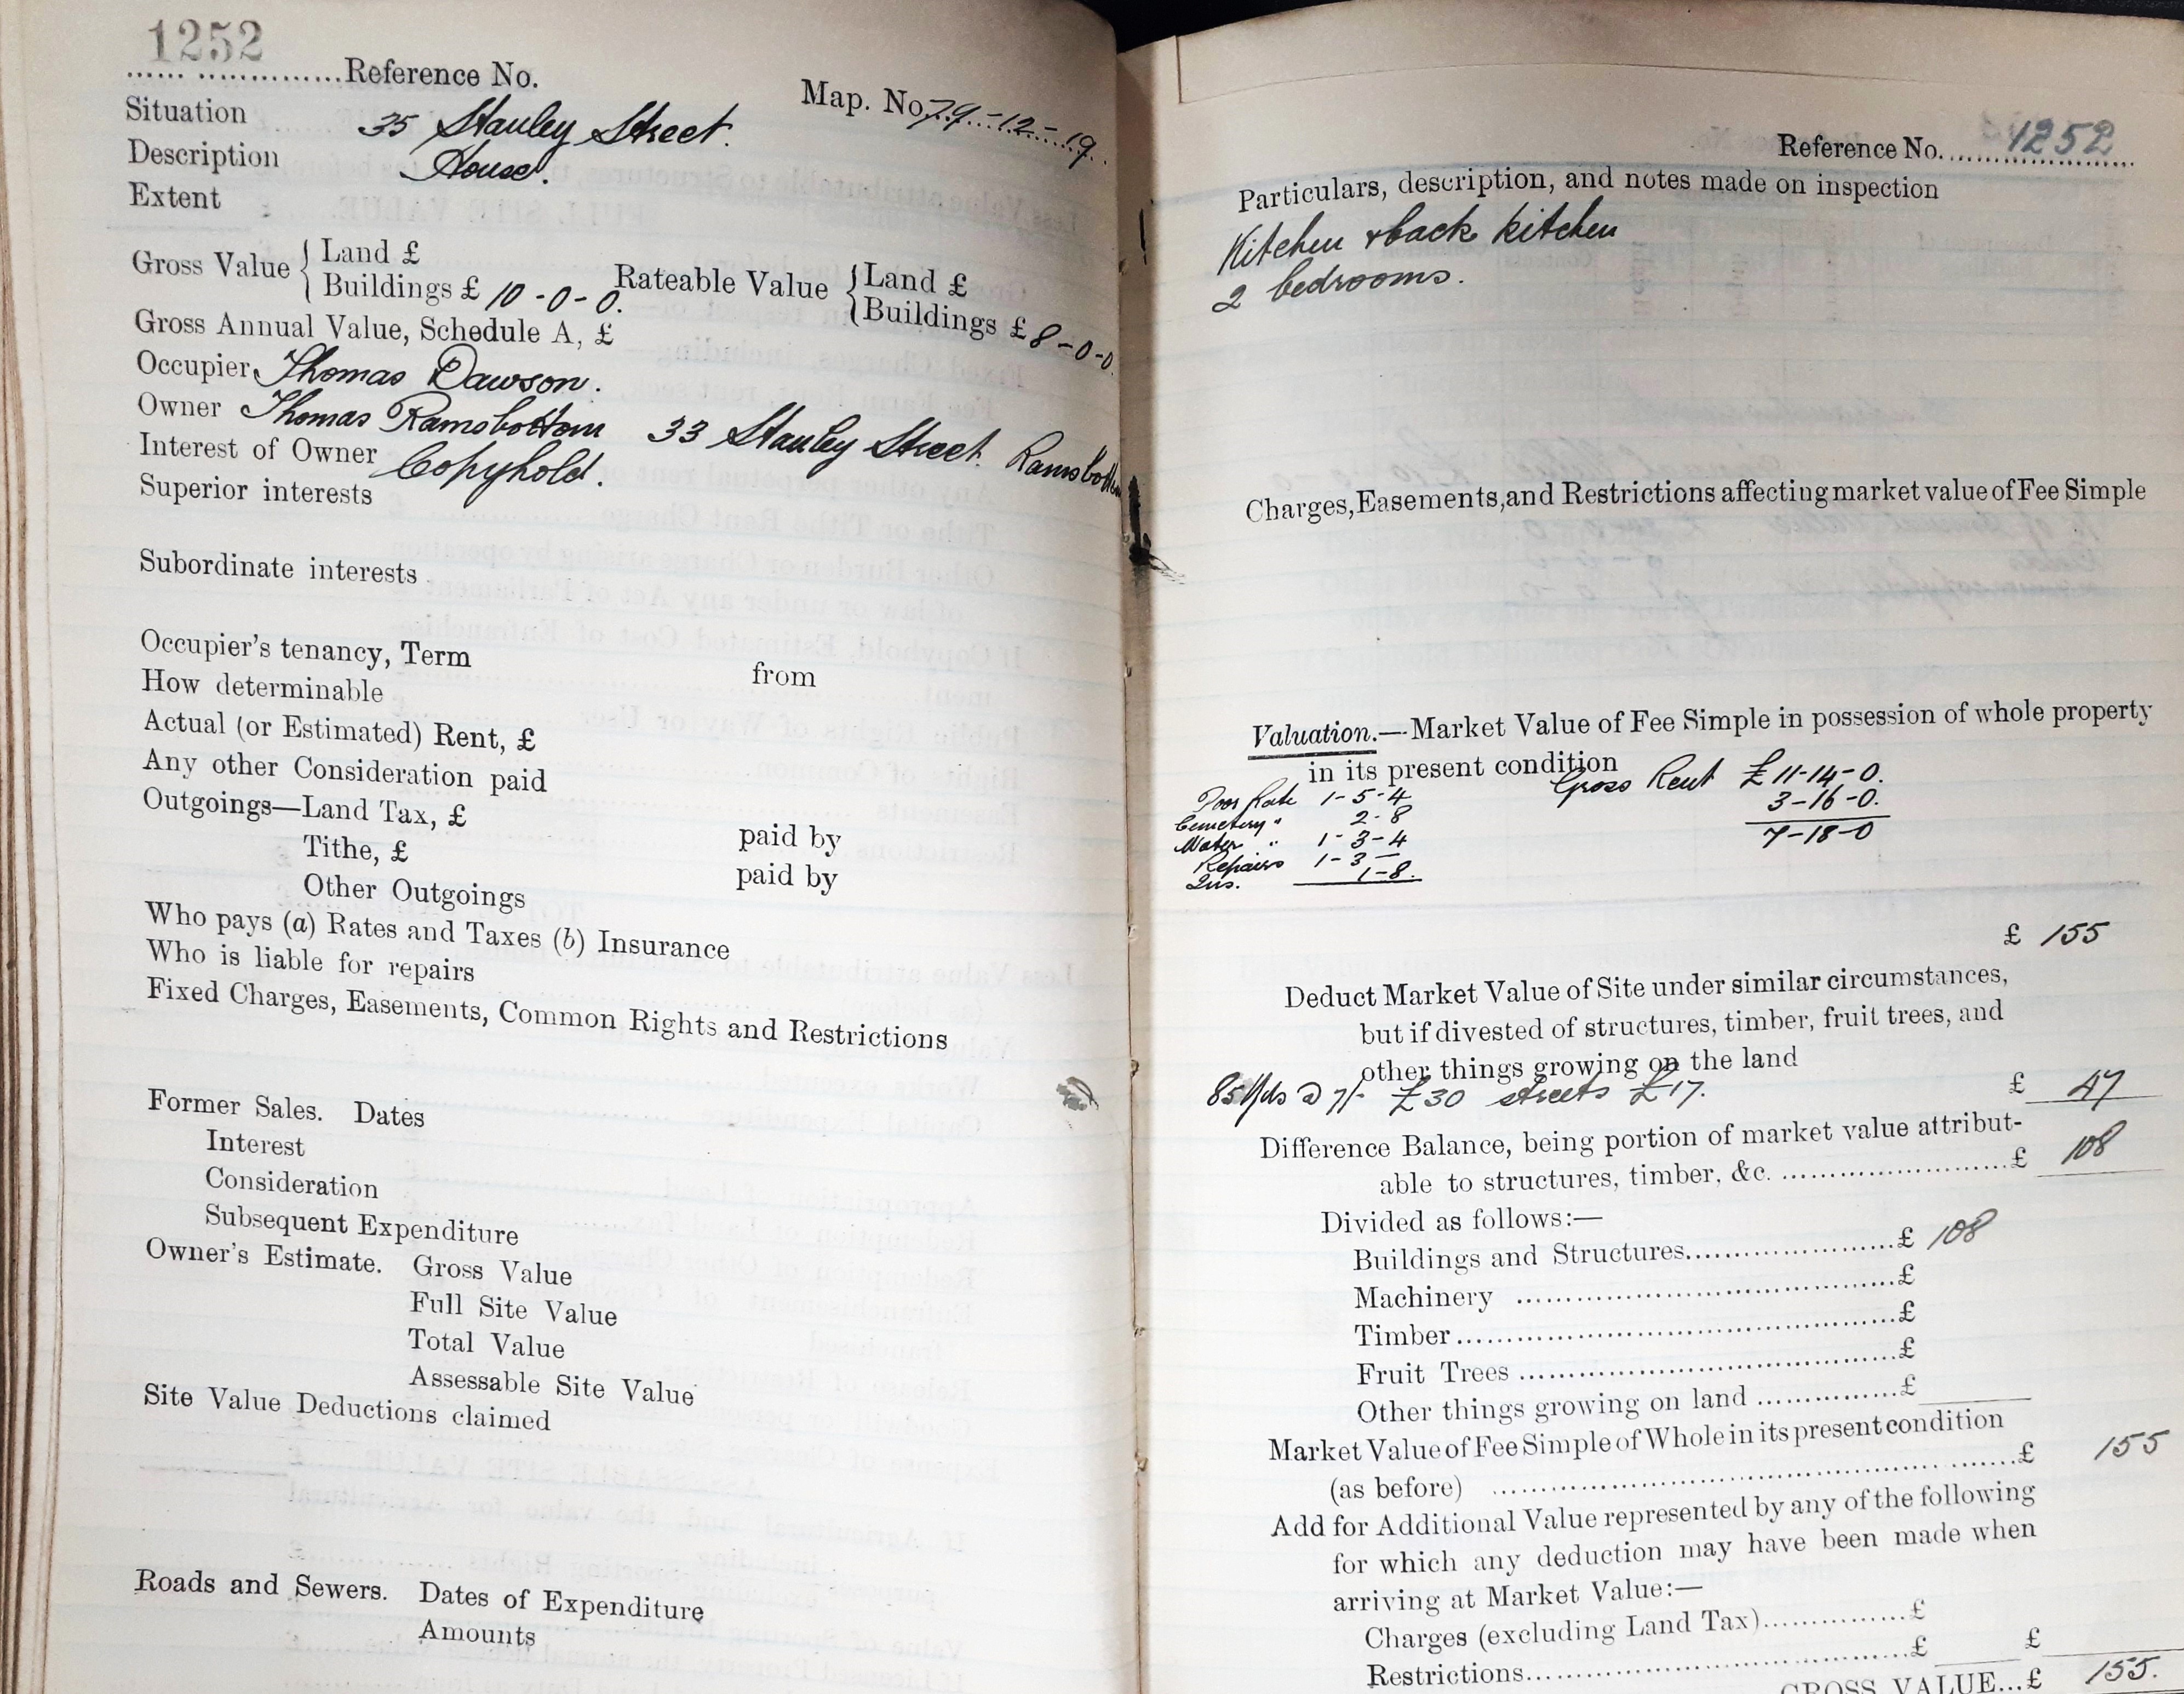 1252
...... ..............Reference No.
Map. No 79-12-19
Situation 35 Stanley Street.
Description House.
Extent
Gross Value { Land £
Buildings £ 10-0-0.
Rateable Value { Land £
Buildings £ 8-0-0
Gross Annual Value, Schedule A, £
Occupier Thomas Dawson.
Owner Thomas Ramsbottom 33 Stanley Street. Ramsbottom
Interest of Owner Copyhold.
Superior interests
Subordinate interests
Occupier's tenancy, Term from
How determinable
Actual (or Estimated) Rent, £
Any other Consideration paid
Outgoings—Land Tax, £ paid by
Tithe, £ paid by
Other Outgoings
Who pays (a) Rates and Taxes (b) Insurance
Who is liable for repairs
Fixed Charges, Easements, Common Rights and Restrictions
Former Sales. Dates
Interest
Consideration
Subsequent Expenditure
Owner's Estimate. Gross Value
Full Site Value
Total Value
Assessable Site Value
Site Value Deductions claimed
Roads and Sewers. Dates of Expenditure
Amounts
Reference No. 1252
Particulars, description, and notes made on inspection
Kitchen & back kitchen
2 bedrooms.
Charges, Easements, and Restrictions affecting market value of Fee Simple
Valuation.—Market Value of Fee Simple in possession of whole property
in its present condition
Gross Rent £11-14-0.
3-16-0.
7-18-0
Poor Rate 1-5-4
Cemetery " 2-8
Water " 1-3-4
Repairs 1-3-
Ins. 1-8.
£ 155
Deduct Market Value of Site under similar circumstances,
but if divested of structures, timber, fruit trees, and
other things growing on the land
85 Yds @ 7/- £30 streets £17. £ 47
Difference Balance, being portion of market value attribut-
able to structures, timber, &c. ..........................£ 108
Divided as follows:—
Buildings and Structures........................£ 108
Machinery ..............................................£
Timber.....................................................£
Fruit Trees ..............................................£
Other things growing on land ................£
Market Value of Fee Simple of Whole in its present condition
(as before) ..................................................£ 155
Add for Additional Value represented by any of the following
for which any deduction may have been made when
arriving at Market Value:—
Charges (excluding Land Tax)................£
Restrictions..............................................£ £
GROSS VALUE...£ 155.